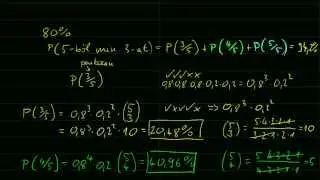 80%
P(5-ből min 3-at) = P(3/5) + P(4/5) + P(5/5) = 94,2%
pontosan
P(3/5)
✓✓✓xx
0,8·0,8·0,8·0,2·0,2 = 0,8³·0,2²
P(3/5) = 0,8³·0,2²·(5 3)
✓x✓✓x ⇒ 0,8³·0,2²
= 0,8³·0,2²·10 = 20,48%
(5 3) = 5·4·3·2·1 / 3·2·1·2·1 = 10
P(4/5) = 0,8⁴·0,2·(5 4) = 40,96%
(5 4) = 5·4·3·2·1 / 4·3·2·1·1 = 5